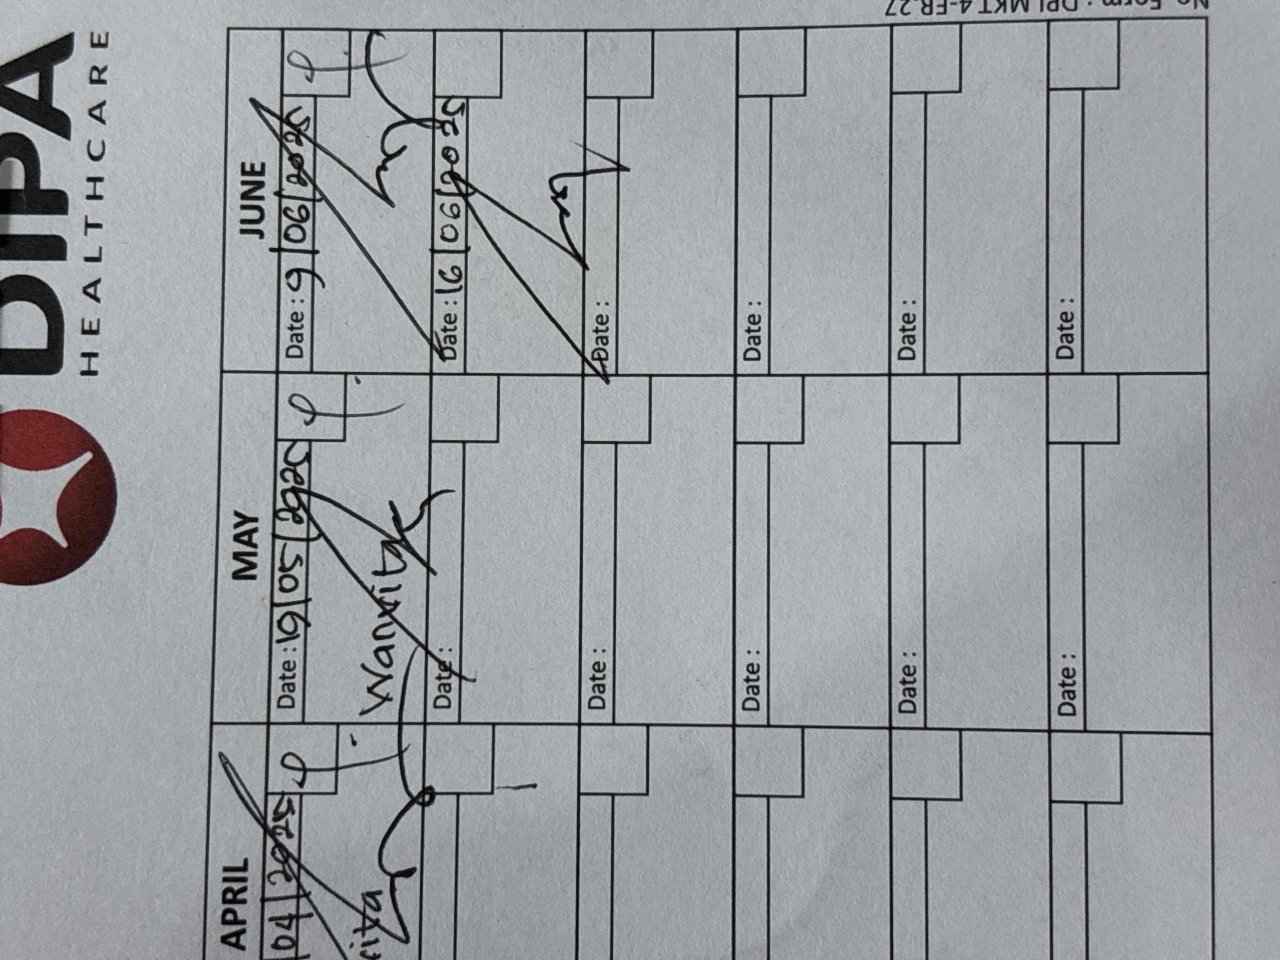 DIPA
HEALTHCARE
APRIL
MAY
JUNE
04/2025
Date : 19/05/2025
Date : 9/06/2025
Wanrita
Date :
Date : 16/06/2025
Date :
Date :
Date :
Date :
Date :
Date :
Date :
Date :
No. Form : DPI.MKT4-FR.27